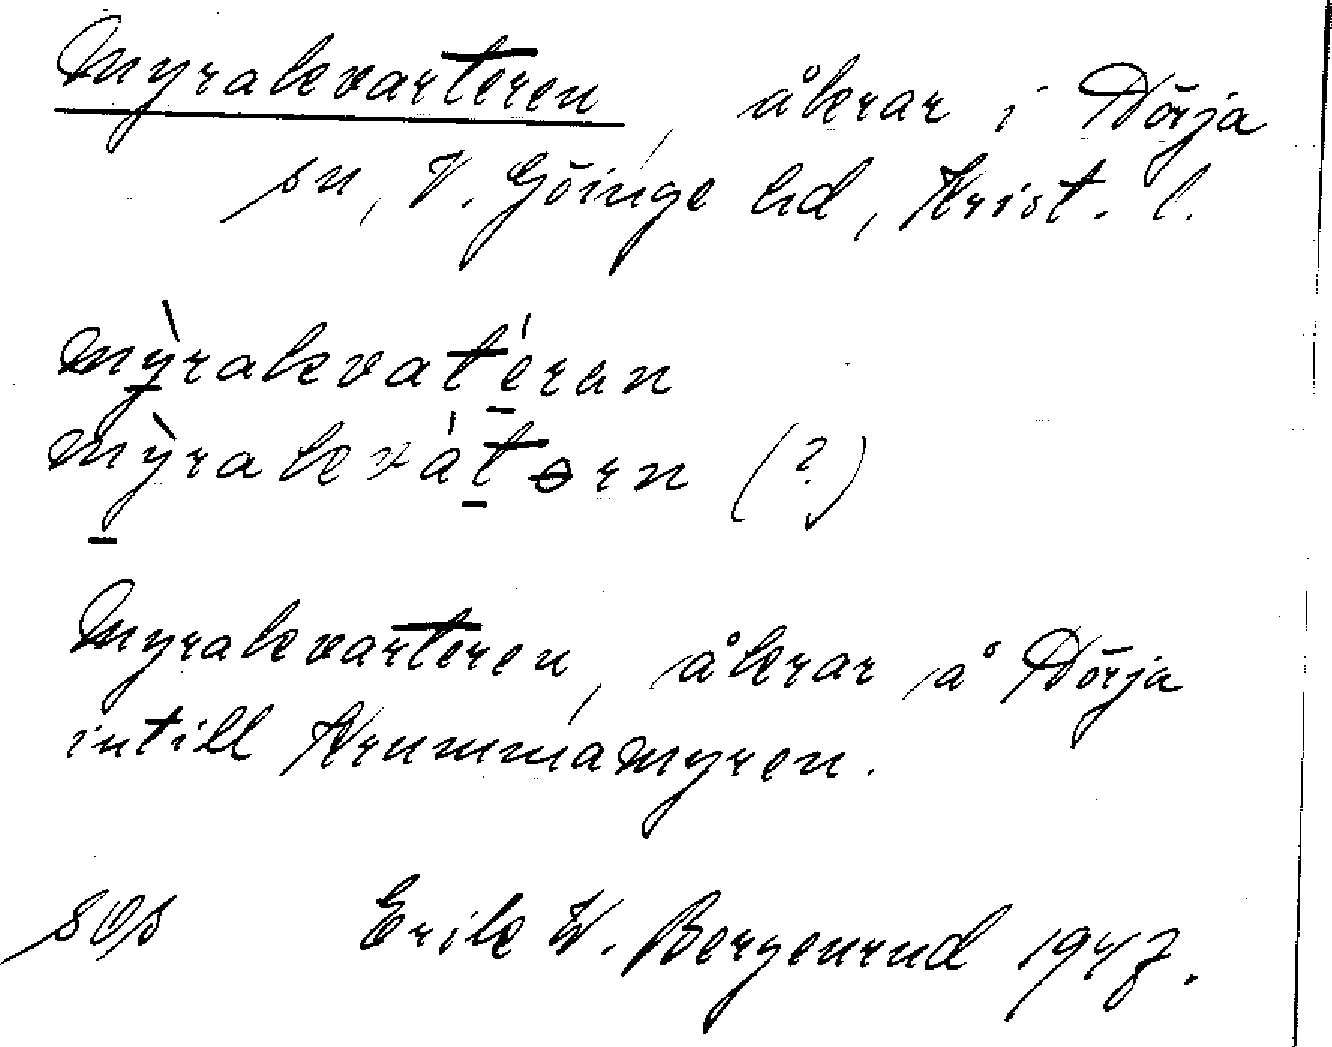 Myrakvarteren, åkrar i Dörja
sn, V. Göinge hd, Krist. l.
mỳrakvatéran
mỳrakvátərn (?)
Myrakvarteren, åkrar å Dörja
intill Krummamyren.
Erik W. Bergenrud 1947.